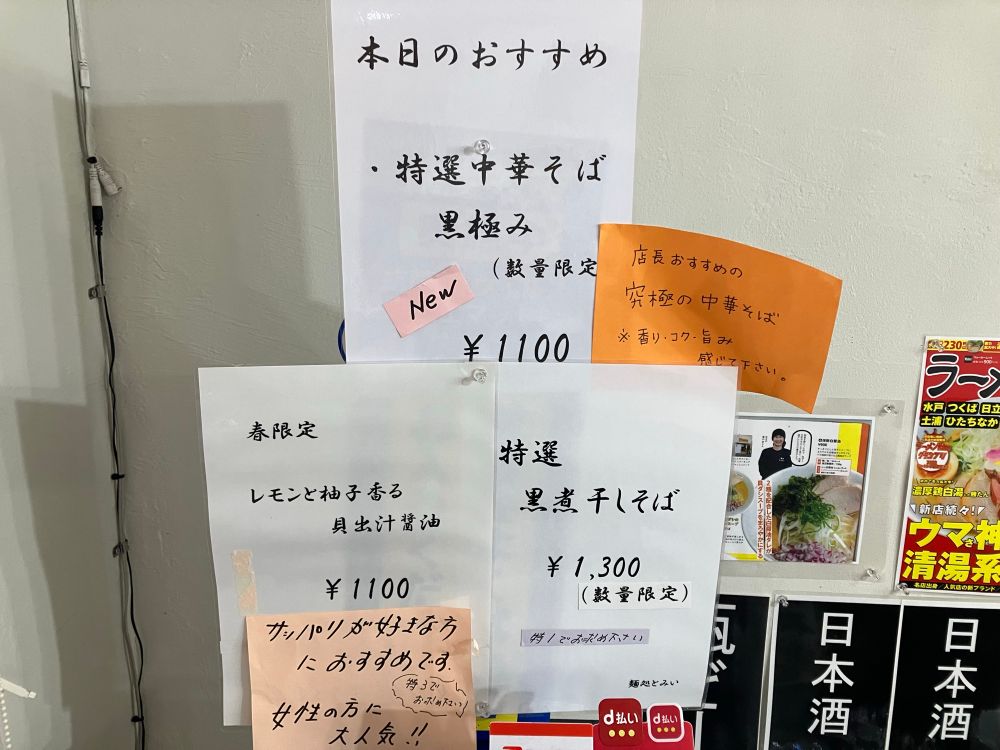 本日のおすすめ
・特選中華そば
黒極み
(数量限定
New
¥1100
店長おすすめの
究極の中華そば
※香り・コク・旨み
感じて下さい。
春限定
レモンと柚子香る
貝出汁醤油
¥1100
サッパリが好きな方
におすすめです。
特3で
お求め下さい
女性の方に
大人気!!
特選
黒煮干しそば
¥1,300
(数量限定)
特1でお求め下さい
麺処とみい
d払い
d払い
ラーメ
水戸 つくば 日立
土浦 ひたちなか
濃厚鶏白湯
新店続々!!
ウマさ神
清湯系
名店出身/人気店の新ブランド
日本酒
日本酒